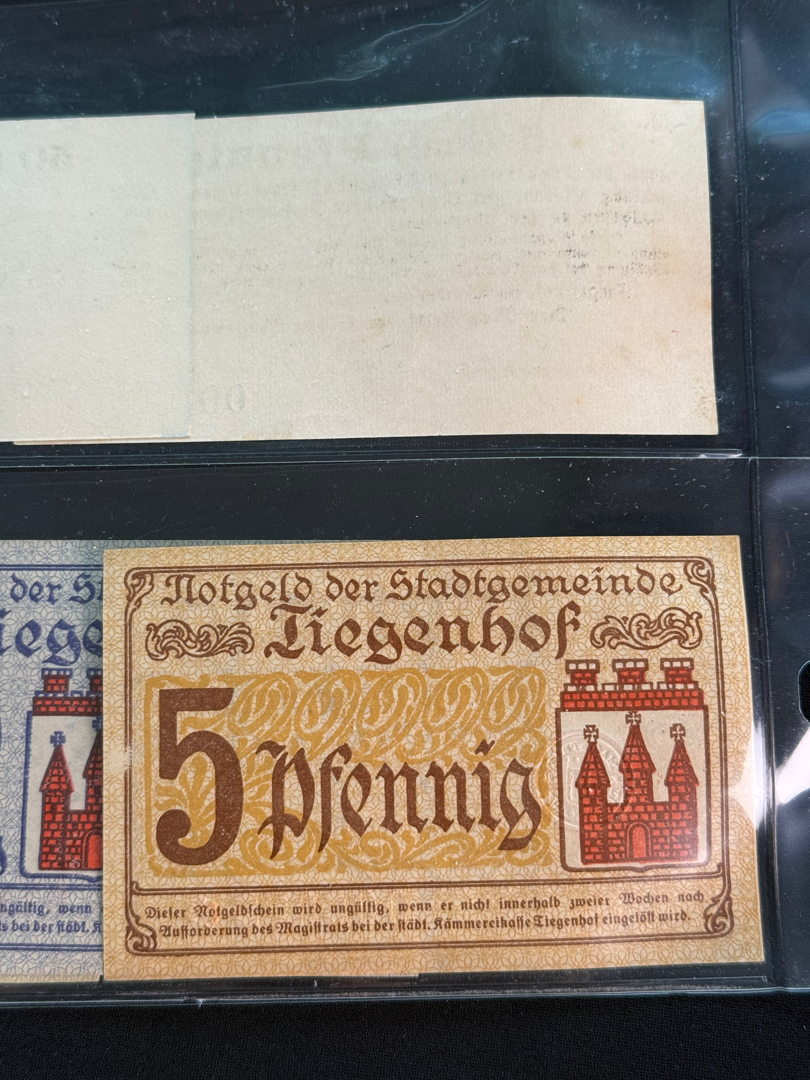 Notgeld der Stadtgemeinde
Tiegenhof
5 Pfennig
Dieser Notgeldschein wird ungültig, wenn er nicht innerhalb zweier Wochen nach
Aufforderung des Magistrats bei der städt. Kämmereikasse Tiegenhof eingelöst wird.
der
wenn
bei der städt.